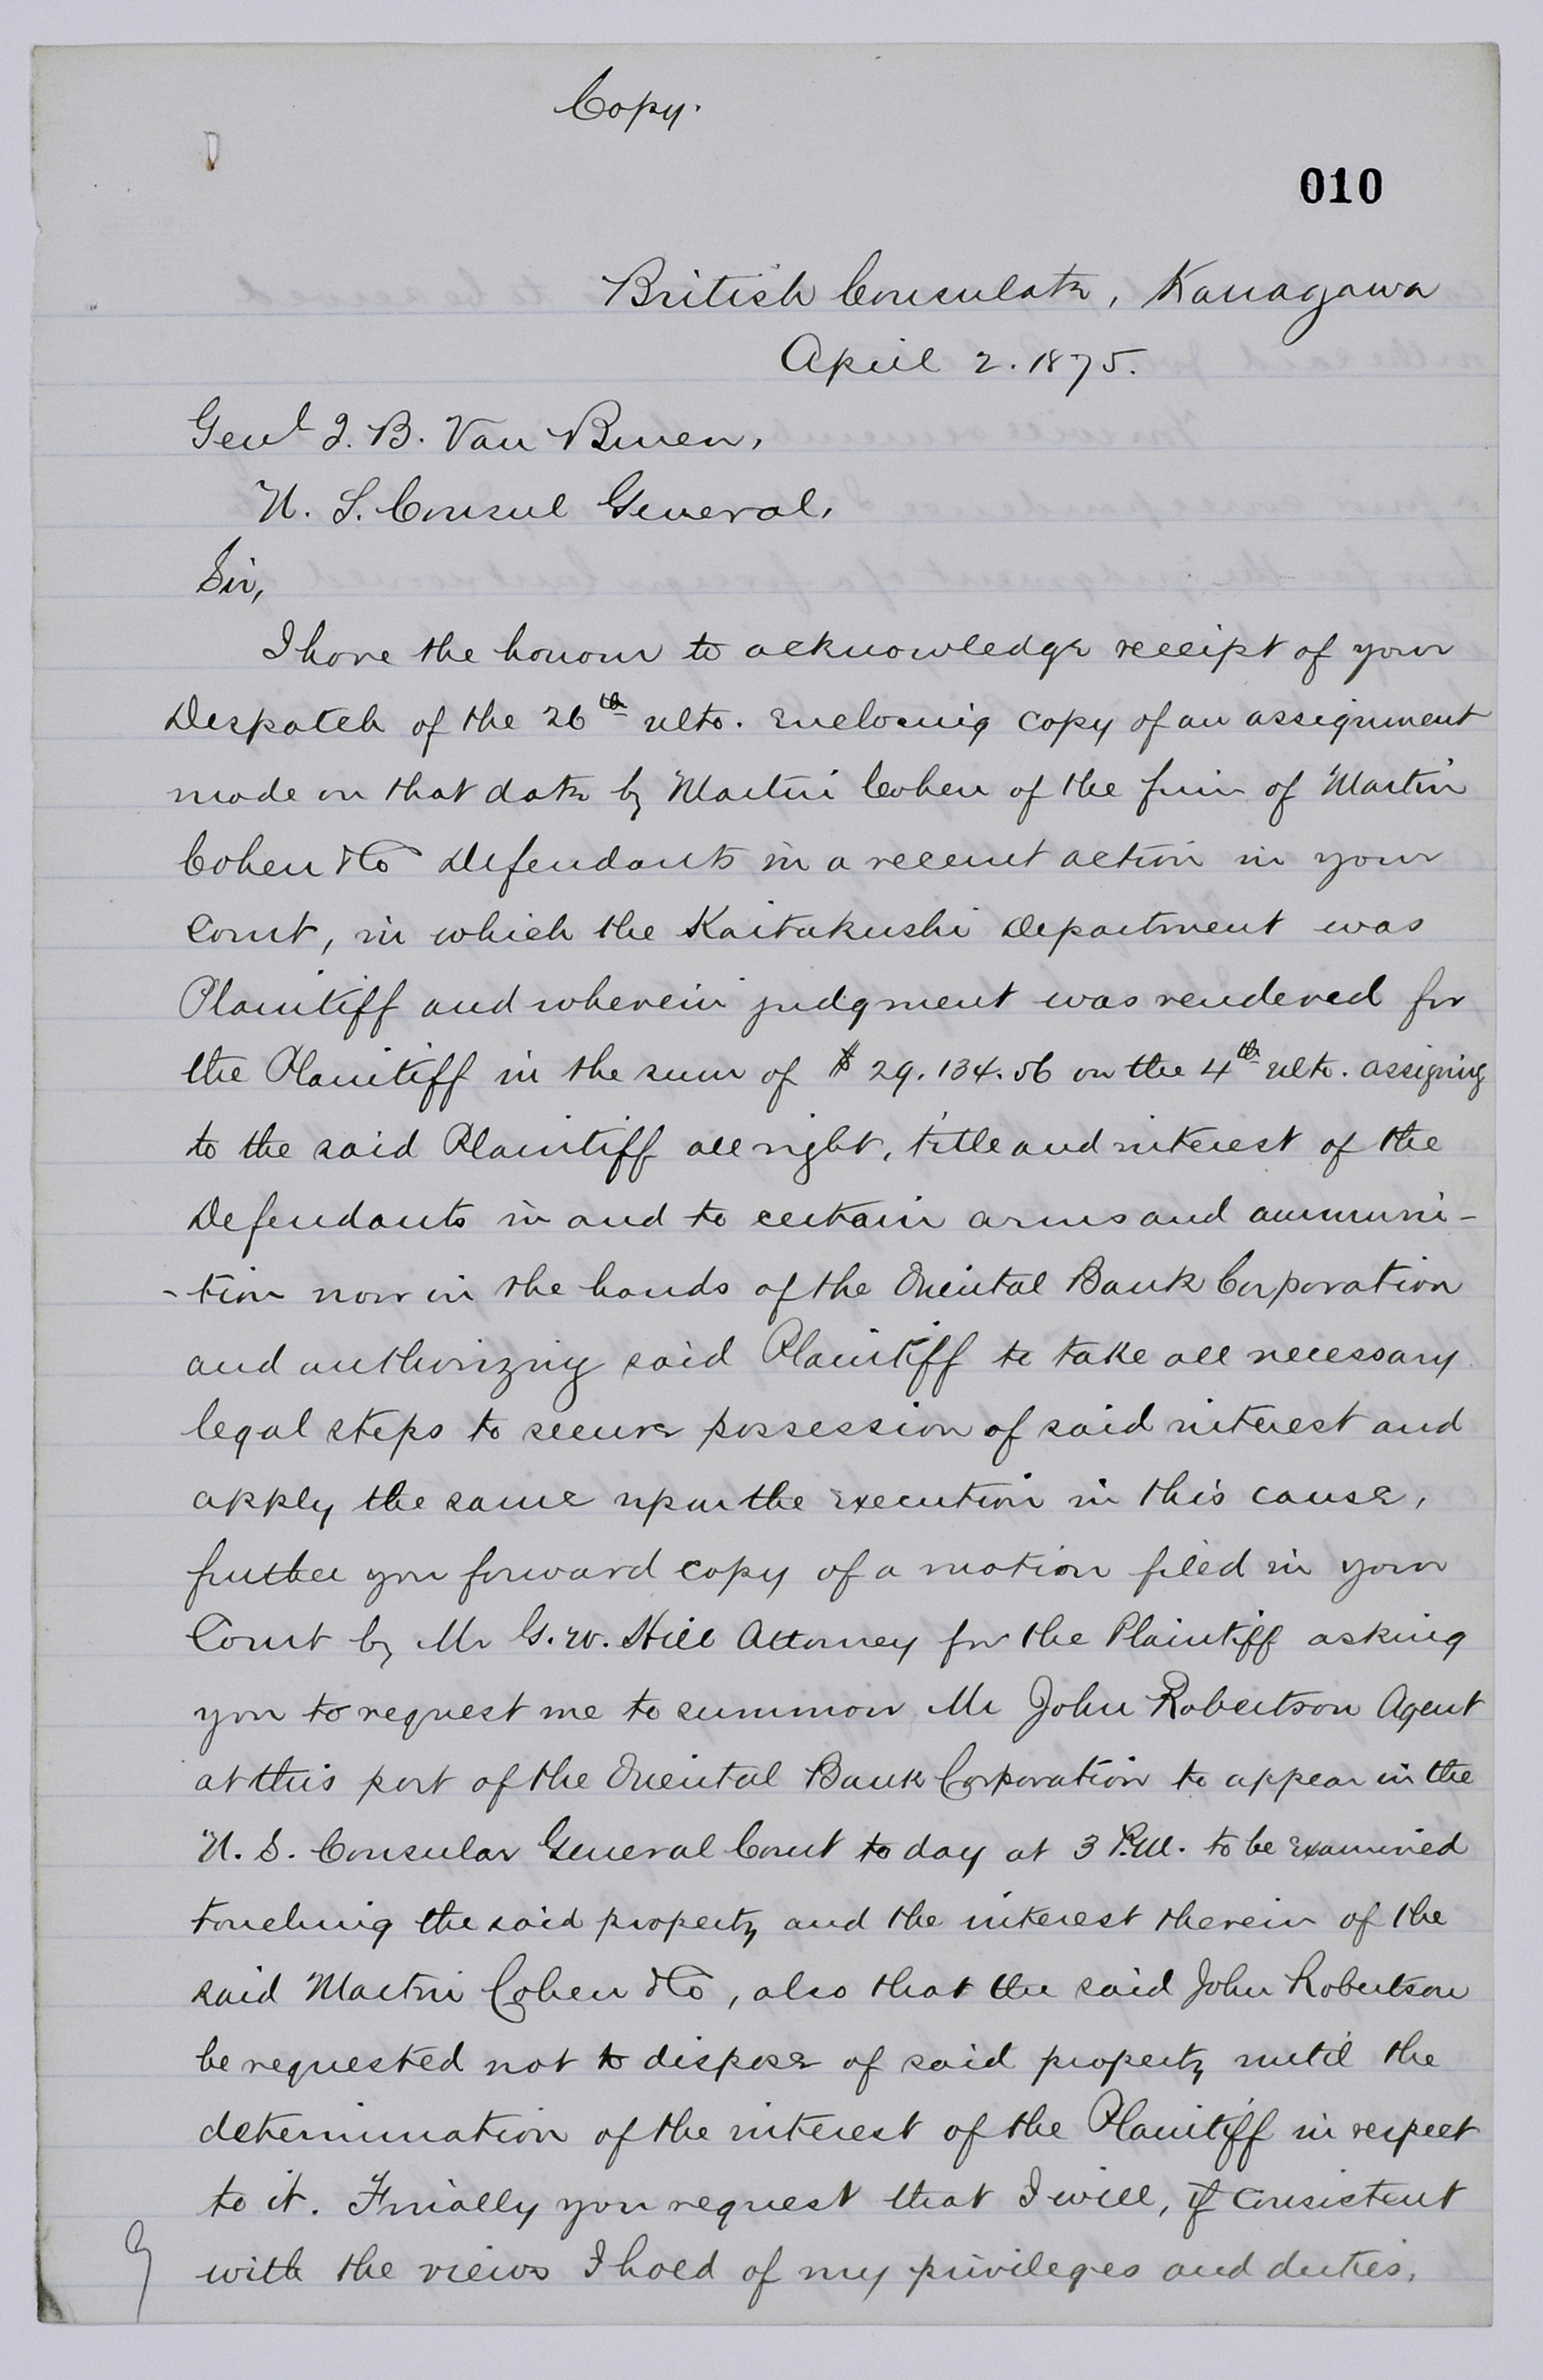 Copy.
010
British Consulate, Kanagawa
April 2. 1875.
Genl T. B. Van Buren,
U. S. Consul General,
Sir,
I have the honour to acknowledge receipt of your
Despatch of the 26th ulto. enclosing copy of an assignment
made on that date by Martin Cohen of the firm of Martin
Cohen & Co Defendants in a recent action in your
Court, in which the Kaitakushi Department was
Plaintiff and wherein judgment was rendered for
the Plaintiff in the sum of $ 29.134.56 on the 4th ulto. assigning
to the said Plaintiff all right, title and interest of the
Defendants in and to certain arms and ammuni-
-tion now in the hands of the Oriental Bank Corporation
and authorizing said Plaintiff to take all necessary
legal steps to secure possession of said interest and
apply the same upon the execution in this cause,
further you forward copy of a motion filed in your
Court by Mr G. W. Hill Attorney for the Plaintiff asking
you to request me to summon Mr John Robertson Agent
at this port of the Oriental Bank Corporation to appear in the
U. S. Consular General Court to day at 3 P.M. to be examined
touching the said property and the interest therein of the
said Martin Cohen & Co, also that the said John Robertson
be requested not to dispose of said property until the
determination of the interest of the Plaintiff in respect
to it. Finally you request that I will, if consistent
with the views I hold of my privileges and duties,
9